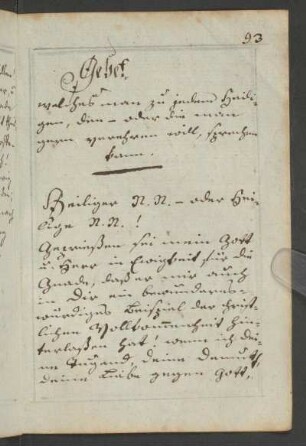 93
Gebet
welches man zu jedem Heili-
gen, den – oder die man
gegen verehren will, sprechen
kann.
Heiliger N. N. – oder Hei-
lige N. N. !
Gepriesen sei mein Gott
u. Herr in Ewigkeit für die
Gnade, daß er mir auch
in Dir ein bewunderns-
würdiges Beispiel der christ-
lichen Vollkommenheit hin-
terlaßen hat! wenn ich dei-
ne Tugend, deine Demuth,
deine Liebe gegen Gott,